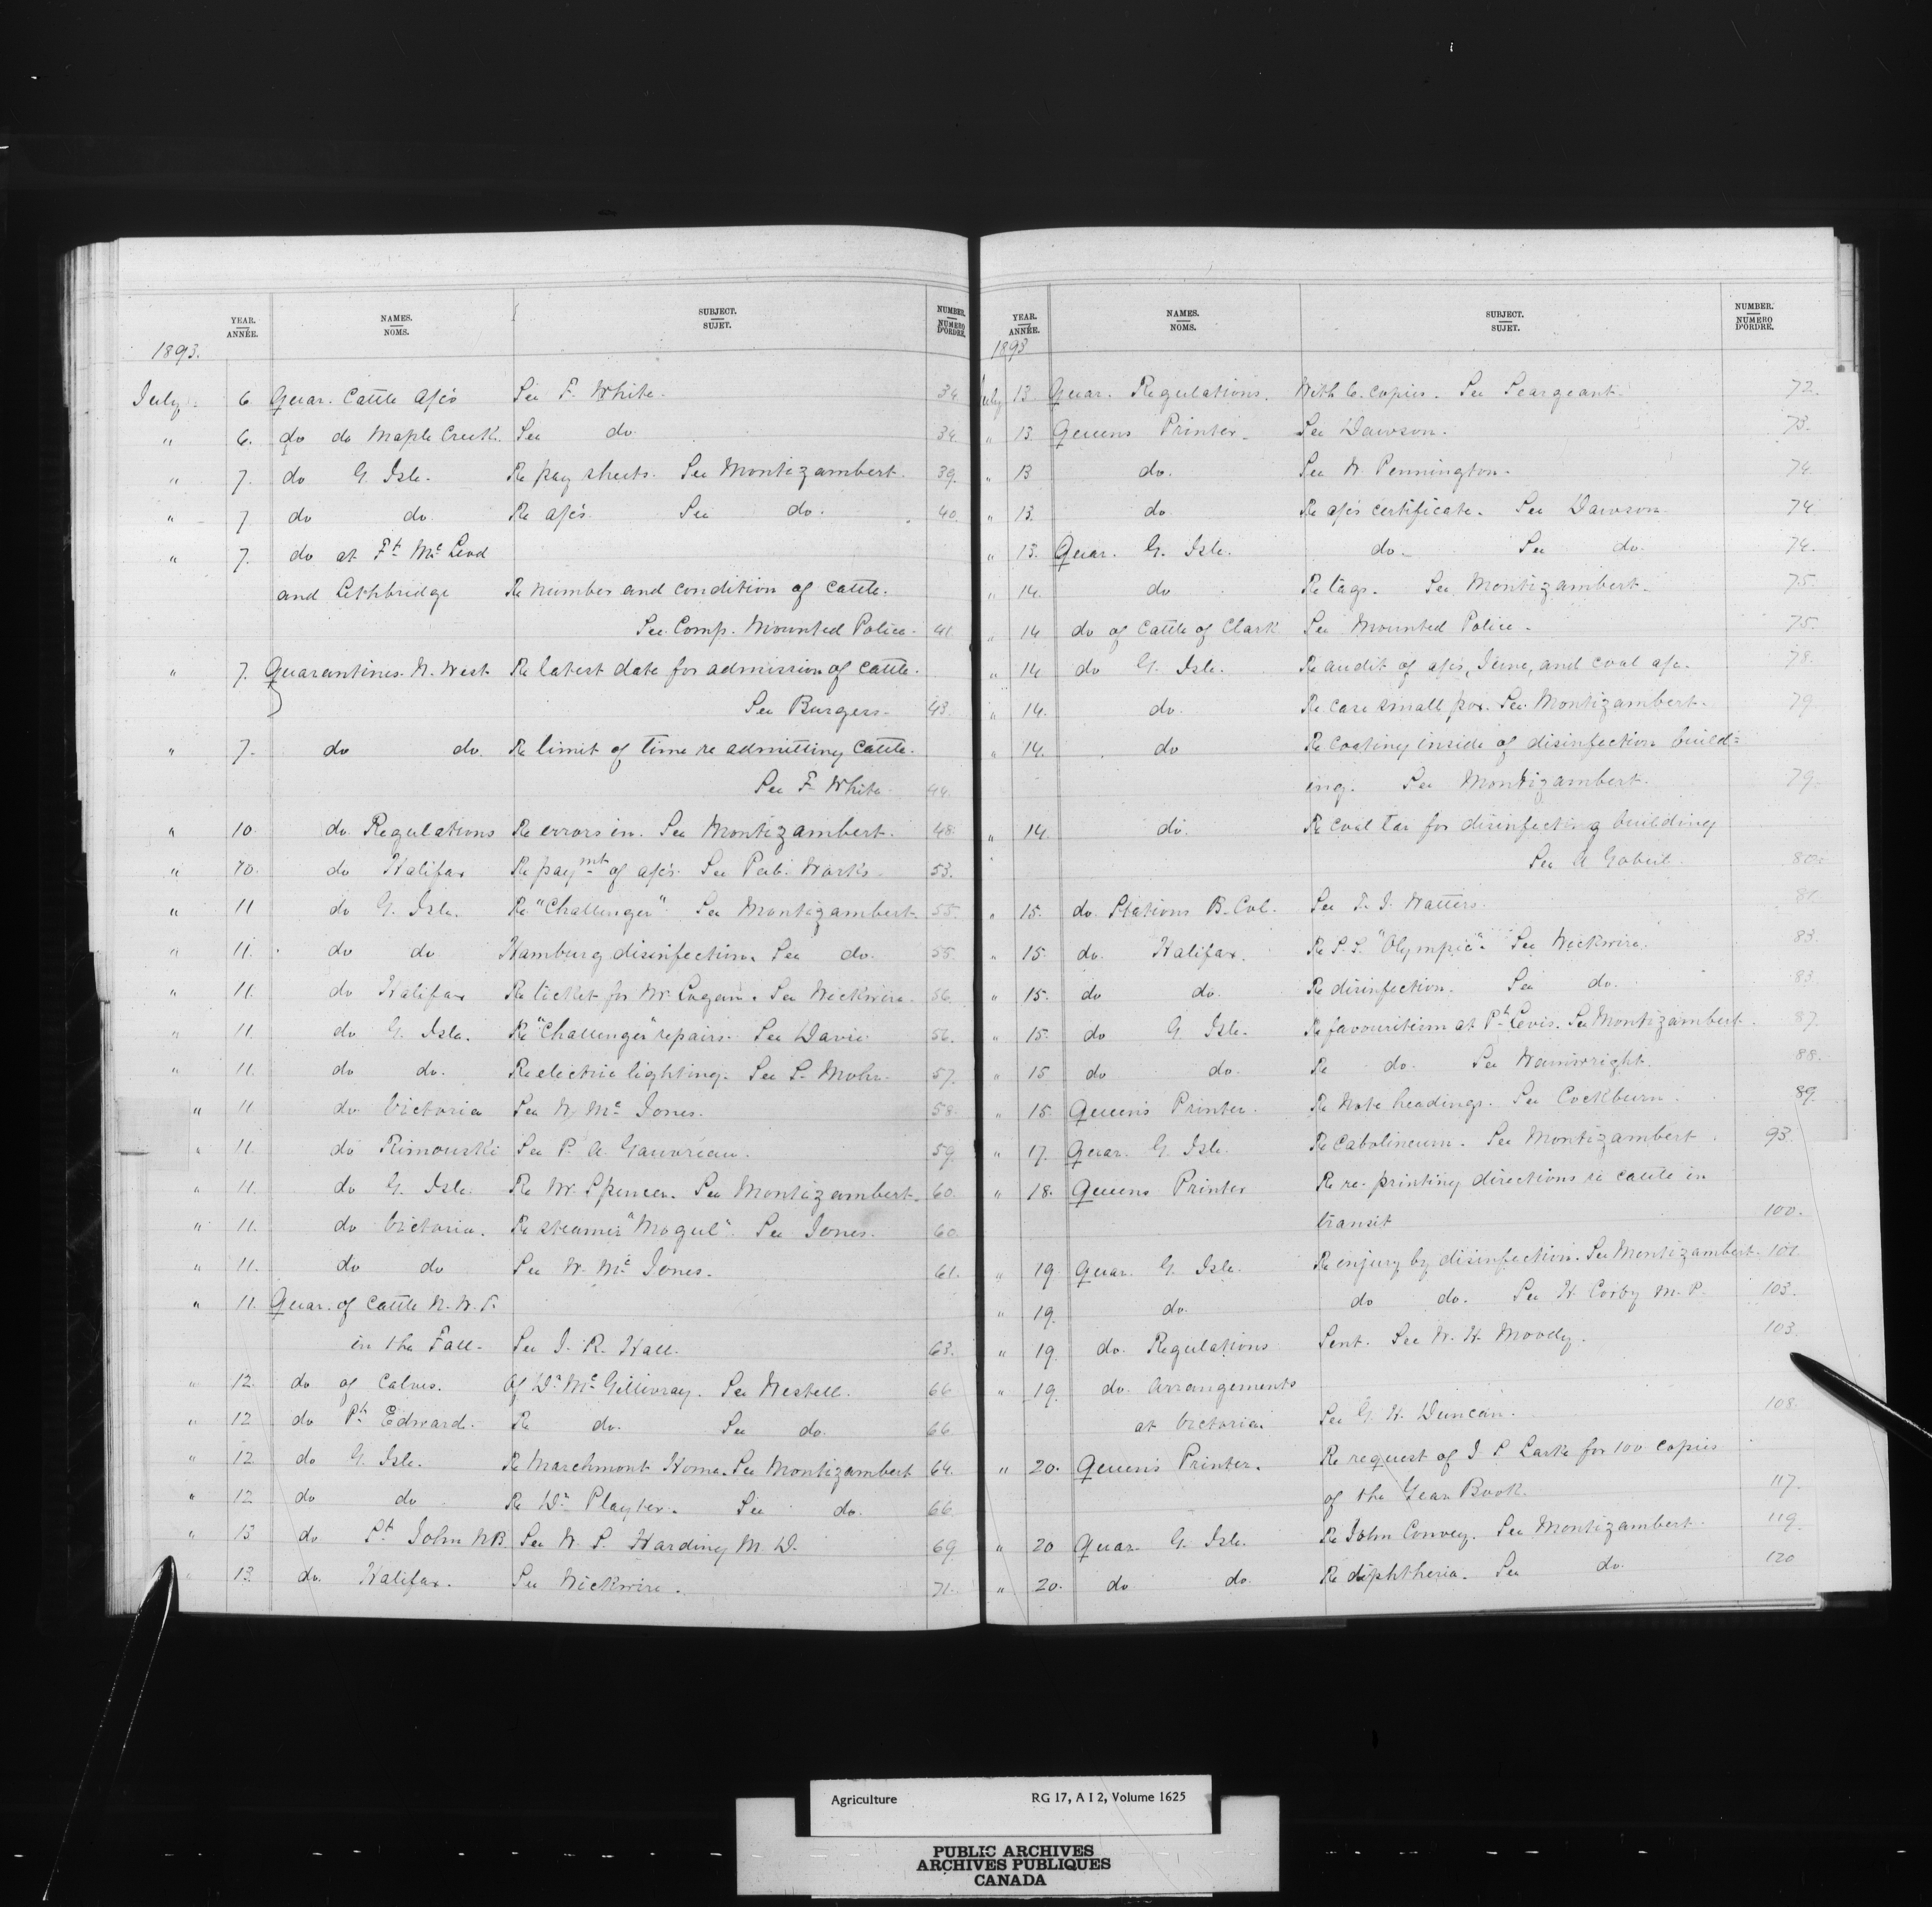 YEAR. ANNÉE. NAMES. NOMS. SUBJECT. SUJET. NUMBER. NUMÉRO D'ORDRE.
1893.
July 6 Quar. Cattle a/cs See F. White. 34
" 6. do do Maple Creek. See do 34
" 7. do G. Isle. Re pay sheets. See Montizambert. 39.
" 7 do do Re a/cs See do. 40.
" 7. do at Ft. McLeod
and Lethbridge Re number and condition of cattle.
See Comp. Mounted Police. 41.
" 7. Quarantines. N. West. Re latest date for admission of cattle.
See Burgess. 43.
" 7. do do. Re limit of time re admitting cattle.
See F. White. 44.
" 10. do Regulations Re errors in. See Montizambert. 48.
" 10. do Halifax Re paymt of a/cs. See Pub. Works. 53.
" 11 do G. Isle. Re "Challenger". See Montizambert. 55.
" 11. do do Hamburg disinfection. See do. 55.
" 11. do Halifax Re ticket for Mr. Logan. See Wickwire. 56.
" 11 do G. Isle. Re "Challenger" repairs. See Davie. 56.
" 11. do do. Re electric lighting. See L. Mohr. 57.
" 11 do Victoria See W. Mc. Jones. 58.
" 11. do Rimouski See P. A. Gauvreau. 59.
" 11. do G. Isle. Re Mr. Spencer. See Montizambert. 60.
" 11. do Victoria. Re steamer "Mogul". See Jones. 60
" 11. do do See W. Mc. Jones. 61.
" 11. Quar. of Cattle N. W. T.
in the Fall. See J. R. Hall. 63.
" 12. do of Calves. Of Dr. McGillivray. See Westell. 66
" 12 do Pt. Edward. Re do. See do. 66
" 12 do G. Isle. Re Marchmont Home. See Montizambert 64.
" 12 do do Re Dr. Playter. See do. 66.
" 13 do St. John N.B. See W. S. Harding M. D. 69.
" 13. do. Halifax. See Wickwire. 71.
YEAR. ANNÉE. NAMES. NOMS. SUBJECT. SUJET. NUMBER. NUMÉRO D'ORDRE.
1893
July 13 Quar. Regulations. With 6. copies. See Seargeant. 72.
" 13. Queens Printer. See Dawson. 73.
" 13 do. See W. Pennington. 74
" 13. do Re a/cs certificate. See Dawson. 74
" 13. Quar. G. Isle. do. See do. 74.
" 14. do Re tags. See Montizambert. 75.
" 14 do of Cattle of Clark See Mounted Police. 75.
" 14 do G. Isle. Re audit of a/cs, June, and coal a/c. 78.
" 14. do. Re case small pox. See Montizambert. 79
" 14. do Re coating inside of disinfection build=
ing. See Montizambert. 79.
" 14 do. Re coal tar for disinfecting building
See A Gobeil. 80.
" 15. do. Stations B. Col. See T. J. Watters. 81
" 15. do. Halifax. Re S. S. "Olympia". See Wickwire. 83.
" 15. do do. Re disinfection. See do. 83.
" 15. do G. Isle. Re favouritism at Pt. Levis. See Montizambert. 87.
" 15 do do. Re do. See Wainwright. 88.
" 15. Queen's Printer. Re Note headings. See Cockburn. 89.
" 17. Quar. G. Isle. Re Cabolineum. See Montizambert. 93.
" 18. Queens Printer Re re-printing directions re cattle in
transit 100.
" 19 Quar. G. Isle. Re injury by disinfection. See Montizambert. 101
" 19. do. do do. See H Corby M. P. 103.
" 19. do. Regulations Sent. See W. H. Moody. 103.
" 19. do. Arrangements
at Victoria. See G. H. Duncan. 108.
" 20. Queen's Printer. Re request of J. S Larke for 100 copies
of the Year Book. 117.
" 20 Quar. G. Isle. Re John Convey. See Montizambert. 119.
" 20. do do. Re diphtheria. See do. 120
Agriculture RG 17, A I 2, Volume 1625
PUBLIC ARCHIVES
ARCHIVES PUBLIQUES
CANADA